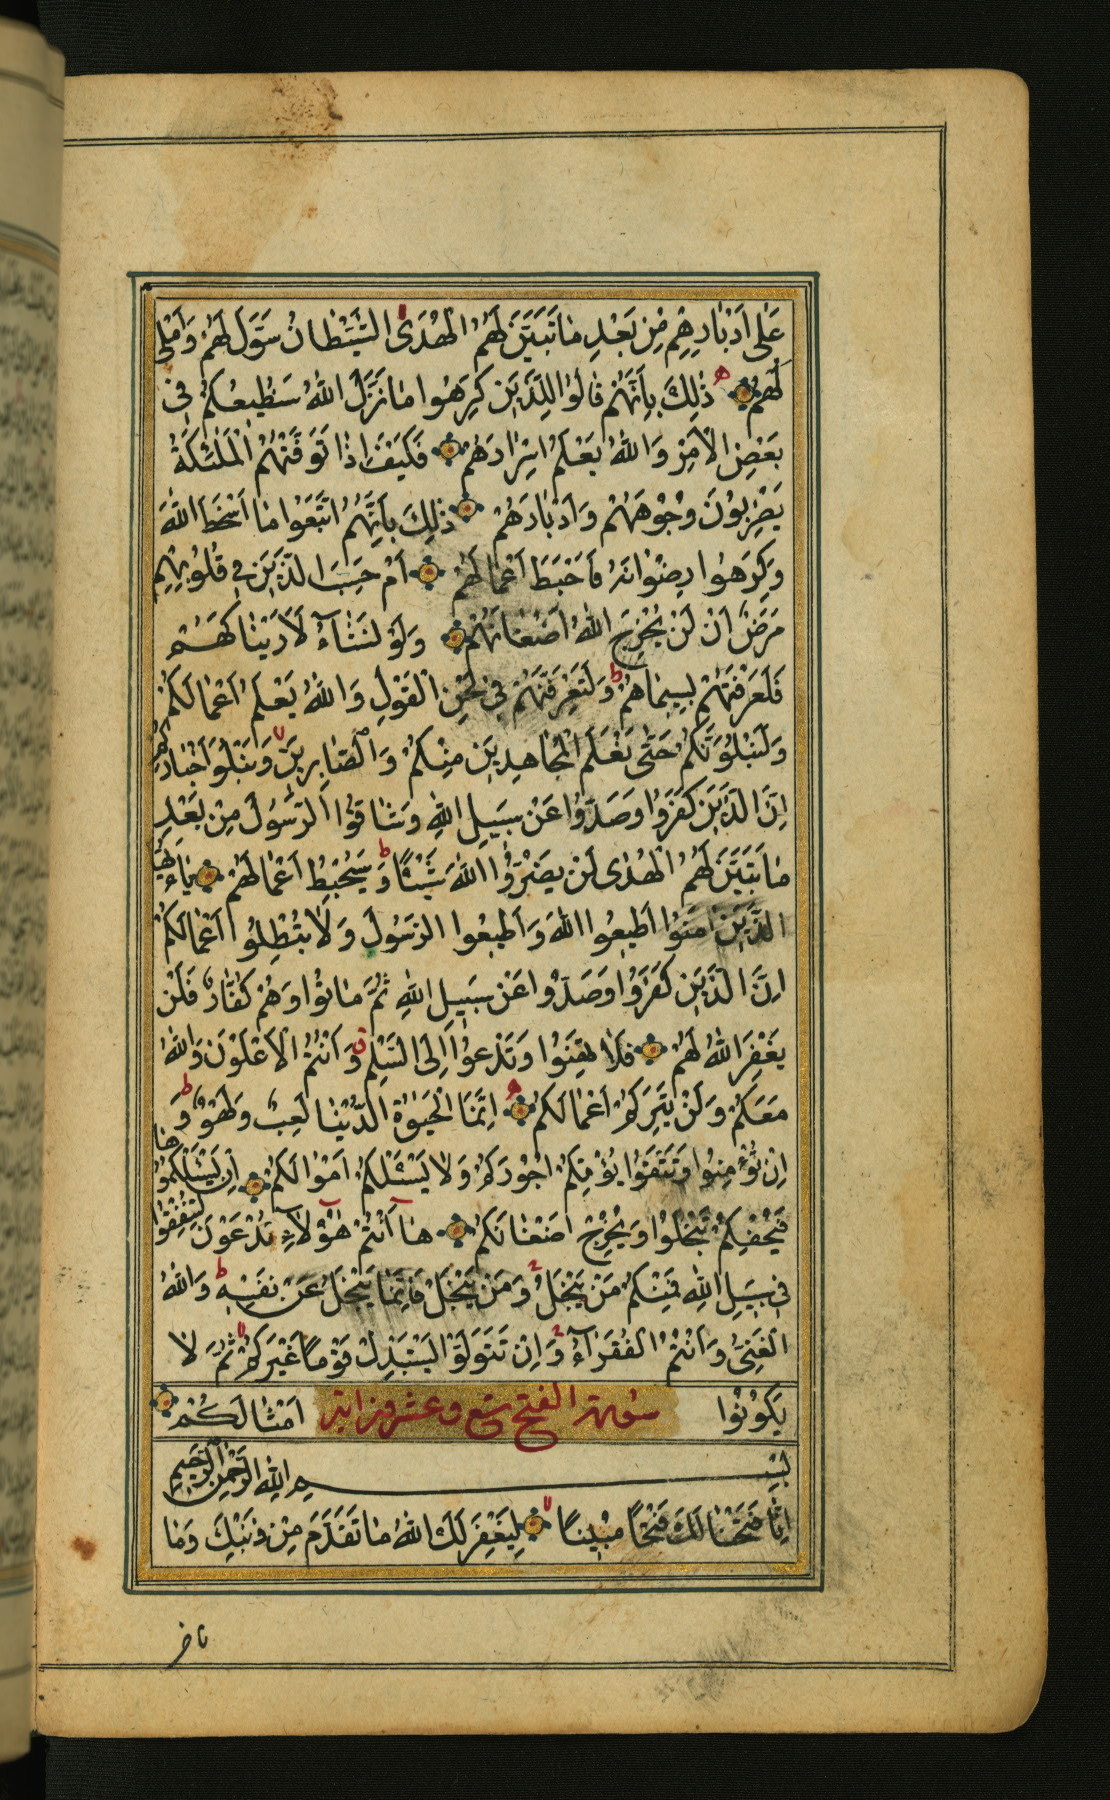 عَلٰى اَدْبَارِهِمْ مِنْ بَعْدِ مَا تَبَيَّنَ لَهُمُ الْهُدَىٰ الشَّيْطَانُ سَوَّلَ لَهُمْ وَاَمْلٰى
لَهُمْ ذٰلِكَ بِاَنَّهُمْ قَالُوا لِلَّذِينَ كَرِهُوا مَا نَزَّلَ اللّٰهُ سَنُطِيعُكُمْ فِى
بَعْضِ الْاَمْرِ وَاللّٰهُ يَعْلَمُ اِسْرَارَهُمْ فَكَيْفَ اِذَا تَوَفَّتْهُمُ الْمَلٰئِكَةُ
يَضْرِبُونَ وُجُوهَهُمْ وَاَدْبَارَهُمْ ذٰلِكَ بِاَنَّهُمُ اتَّبَعُوا مَا اَسْخَطَ اللّٰهَ
وَكَرِهُوا رِضْوَانَهُ فَاَحْبَطَ اَعْمَالَهُمْ اَمْ حَسِبَ الَّذِينَ فِى قُلُوبِهِمْ
مَرَضٌ اَنْ لَنْ يُخْرِجَ اللّٰهُ اَضْغَانَهُمْ وَلَوْ نَشَآءُ لَاَرَيْنَاكَهُمْ
فَلَعَرَفْتَهُمْ بِسِيمَاهُمْ ط وَلَتَعْرِفَنَّهُمْ فِى لَحْنِ الْقَوْلِ وَاللّٰهُ يَعْلَمُ اَعْمَالَكُمْ
وَلَنَبْلُوَنَّكُمْ حَتّٰى نَعْلَمَ الْمُجَاهِدِينَ مِنْكُمْ وَالصَّابِرِينَ لا وَنَبْلُوَا اَخْبَارَكُمْ
اِنَّ الَّذِينَ كَفَرُوا وَصَدُّوا عَنْ سَبِيلِ اللّٰهِ وَشَاقُّوا الرَّسُولَ مِنْ بَعْدِ
مَا تَبَيَّنَ لَهُمُ الْهُدٰى لَنْ يَضُرُّوا اللّٰهَ شَيْئًا ط وَسَيُحْبِطُ اَعْمَالَهُمْ يَاءَيُّهَا
الَّذِينَ اٰمَنُوا اَطِيعُوا اللّٰهَ وَاَطِيعُوا الرَّسُولَ وَلَا تُبْطِلُوا اَعْمَالَكُمْ
اِنَّ الَّذِينَ كَفَرُوا وَصَدُّوا عَنْ سَبِيلِ اللّٰهِ ثُمَّ مَاتُوا وَهُمْ كُفَّارٌ فَلَنْ
يَغْفِرَ اللّٰهُ لَهُمْ فَلَا تَهِنُوا وَتَدْعُوا اِلَى السَّلْمِ ق وَاَنْتُمُ الْاَعْلَوْنَ وَاللّٰهُ
مَعَكُمْ وَلَنْ يَتِرَكُمْ اَعْمَالَكُمْ اِنَّمَا الْحَيٰوةُ الدُّنْيَا لَعِبٌ وَلَهْوٌ ط وَ
اِنْ تُؤْمِنُوا وَتَتَّقُوا يُؤْتِكُمْ اُجُورَكُمْ وَلَا يَسْئَلْكُمْ اَمْوَالَكُمْ اِنْ يَسْئَلْكُمُوهَا
فَيُحْفِكُمْ تَبْخَلُوا وَيُخْرِجْ اَضْغَانَكُمْ هَآ اَنْتُمْ هٰؤُلَآءِ تُدْعَوْنَ لِتُنْفِقُوا
فِى سَبِيلِ اللّٰهِ فَمِنْكُمْ مَنْ يَبْخَلُ ج وَمَنْ يَبْخَلْ فَاِنَّمَا يَبْخَلُ عَنْ نَفْسِهِ ط وَاللّٰهُ
الْغَنِىُّ وَاَنْتُمُ الْفُقَرَآءُ ج وَاِنْ تَتَوَلَّوْا يَسْتَبْدِلْ قَوْمًا غَيْرَكُمْ لا ثُمَّ لَا
يَكُونُوا سورة الفتح تسع وعشرون اية اَمْثَالَكُمْ
بِسْمِ اللّٰهِ الرَّحْمٰنِ الرَّحِيمِ
اِنَّا فَتَحْنَا لَكَ فَتْحًا مُبِينًا لا لِيَغْفِرَ لَكَ اللّٰهُ مَا تَقَدَّمَ مِنْ ذَنْبِكَ وَمَا
تاخر